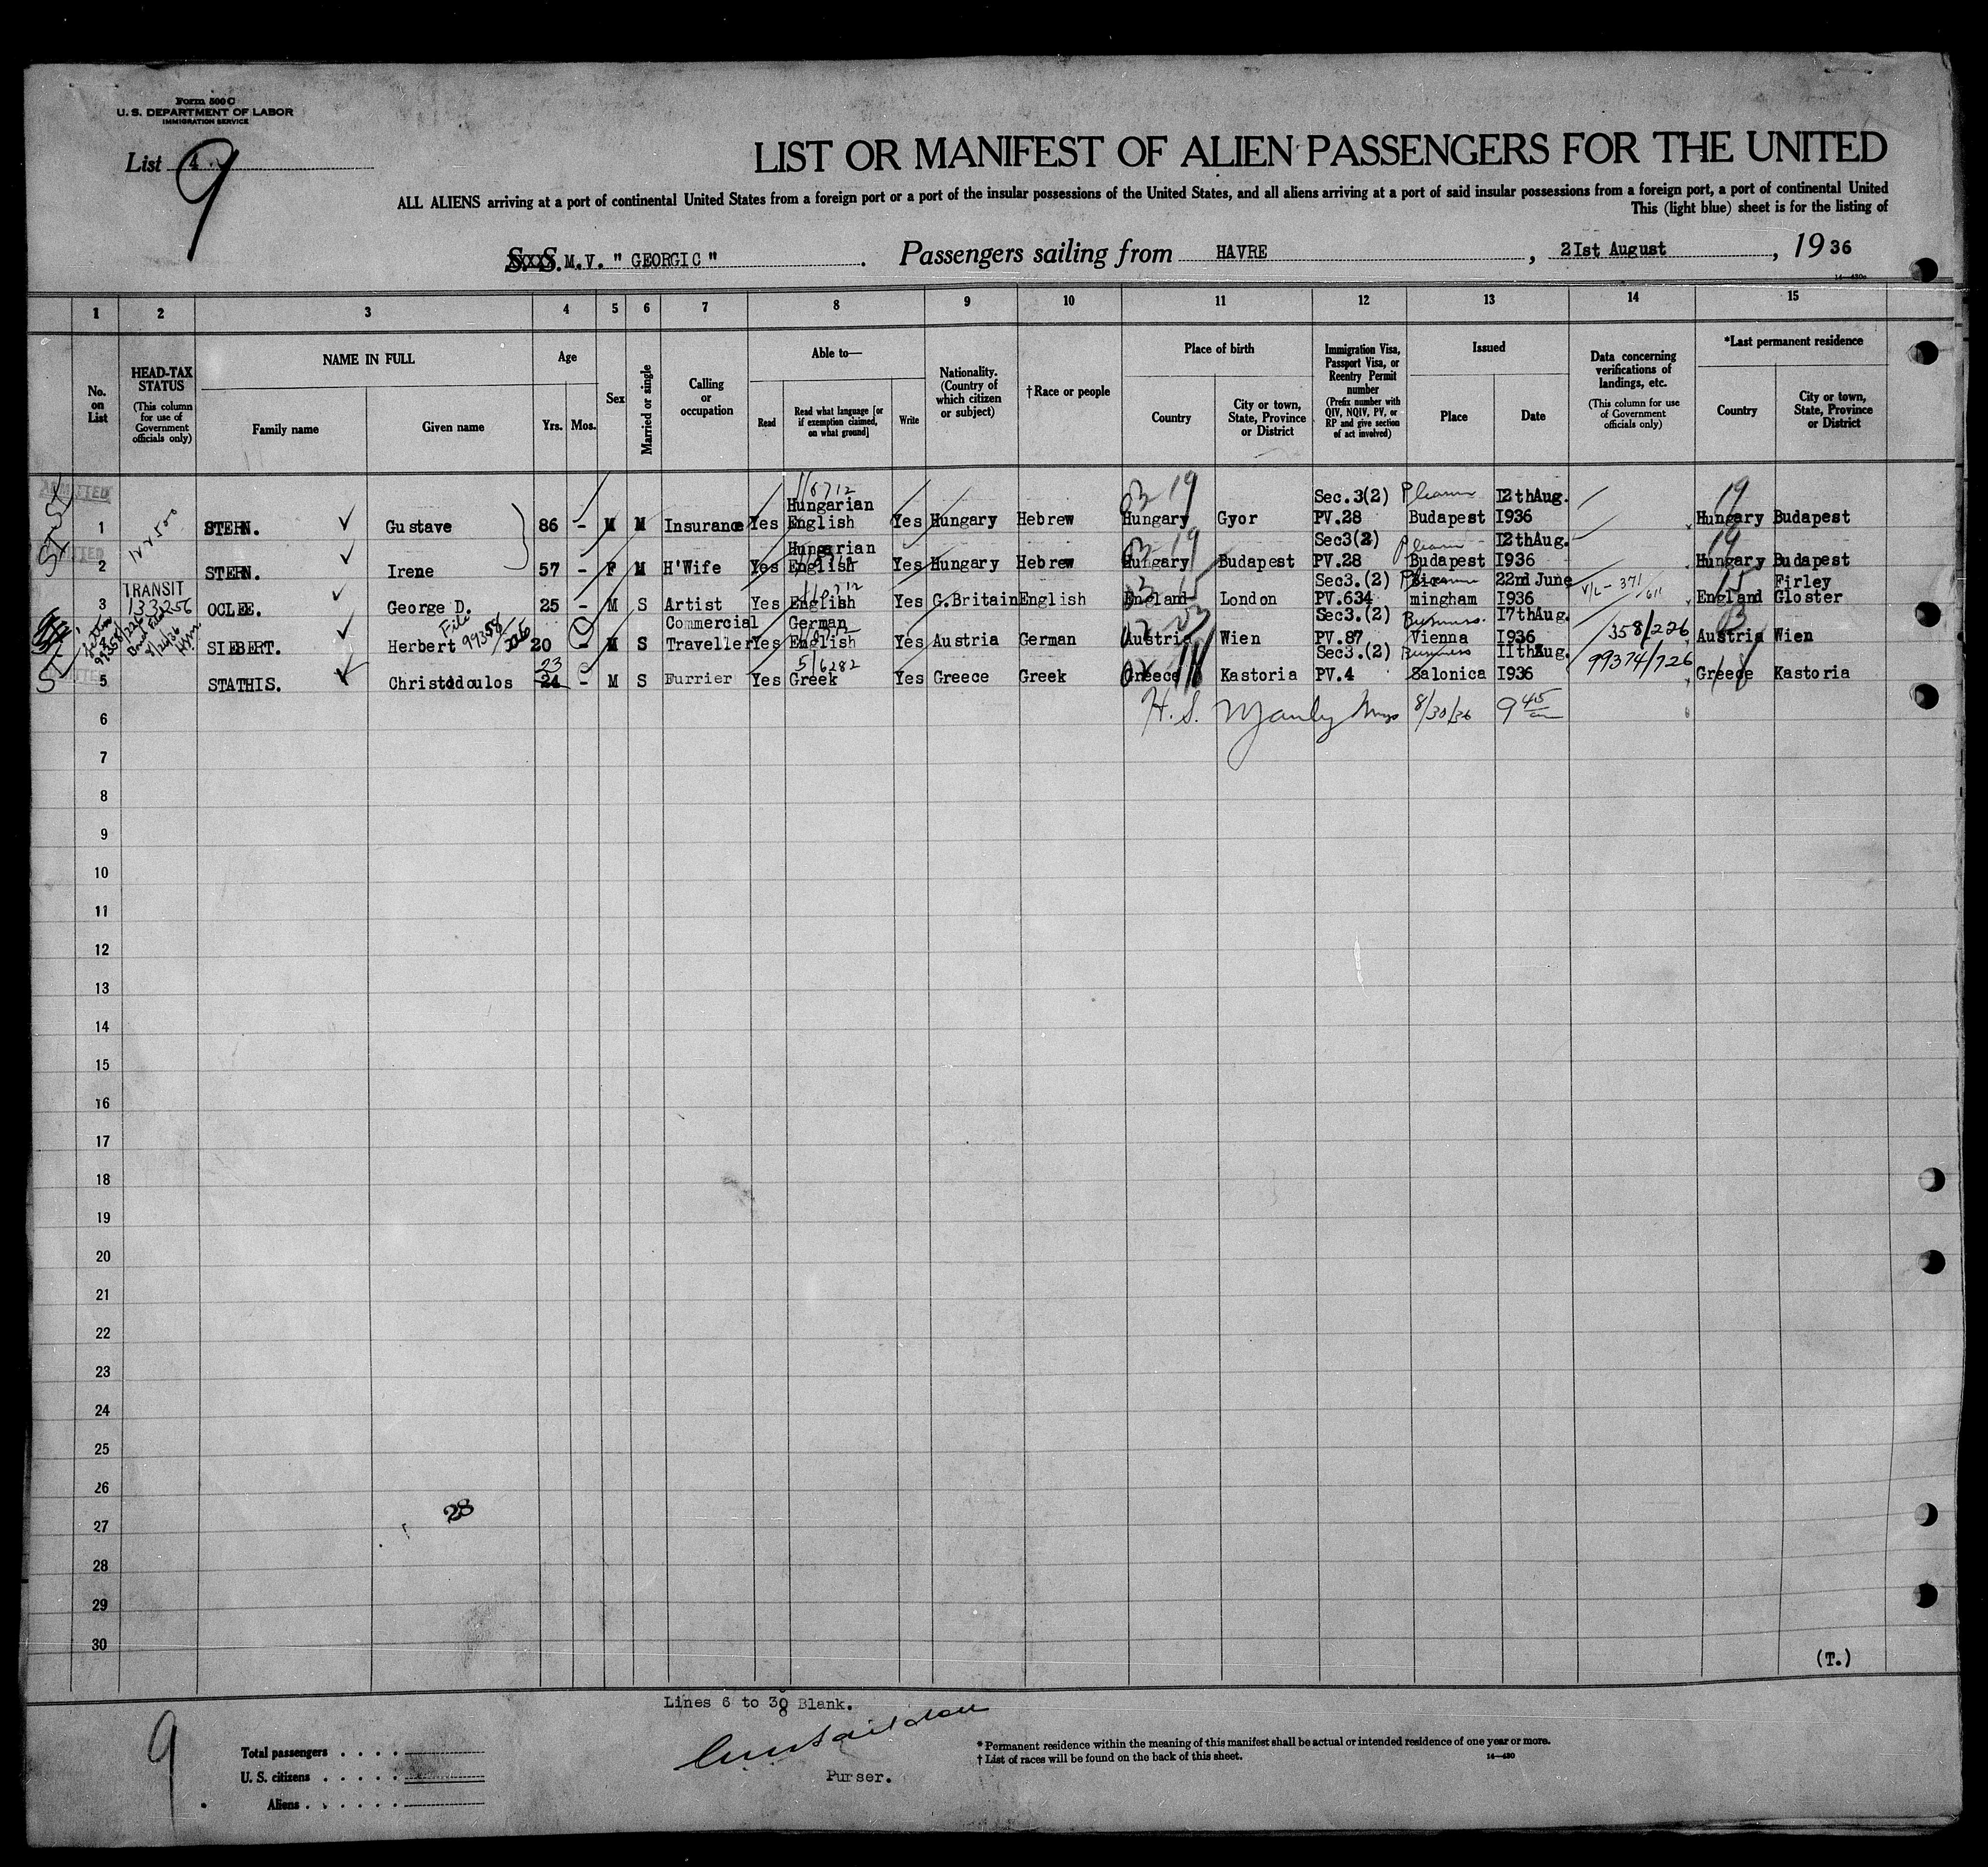 Form 500 C
U. S. DEPARTMENT OF LABOR
IMMIGRATION SERVICE
List 4
9
LIST OR MANIFEST OF ALIEN PASSENGERS FOR THE UNITED
ALL ALIENS arriving at a port of continental United States from a foreign port or a port of the insular possessions of the United States, and all aliens arriving at a port of said insular possessions from a foreign port, a port of continental United
This (light blue) sheet is for the listing of
S. S. M.V. " GEORGIC ". Passengers sailing from HAVRE, 21st August, 1936
1 2 3 4 5 6 7 8 9 10 11 12 13 14 15
No. on List
HEAD-TAX STATUS
(This column for use of Government officials only)
NAME IN FULL
Family name
Given name
Age
Yrs. Mos.
Sex
Married or single
Calling or occupation
Able to—
Read
Read what language [or if exemption claimed, on what ground]
Write
Nationality. (Country of which citizen or subject)
†Race or people
Place of birth
Country
City or town, State, Province or District
Immigration Visa, Passport Visa, or Reentry Permit number
(Prefix number with QIV, NQIV, PV, or RP and give section of act involved)
Issued
Place
Date
Data concerning verifications of landings, etc.
(This column for use of Government officials only)
*Last permanent residence
Country
City or town, State, Province or District
ADMITTED
Hungarian Sec.3(2) 12thAug.
1 STERN. Gustave 86 - M M Insurance Yes English Yes Hungary Hebrew Hungary Gyor PV.28 Budapest 1936 Hungary Budapest
Hungarian Sec3(2) 12thAug.
2 STERN. Irene 57 - F M H'Wife Yes English Yes Hungary Hebrew Hungary Budapest PV.28 Budapest 1936 Hungary Budapest
TRANSIT Sec3.(2) 22nd June Firley
3 OCLEE. George D. 25 - M S Artist Yes English Yes G.Britain English England London PV.634 mingham 1936 England Gloster
Commercial German Sec3.(2) Business 17thAug.
4 SIEBERT. Herbert 20 - M S Traveller Yes English Yes Austria German Austria Wien PV.87 Vienna 1936 358/226 Austria Wien
File 99358/226
23 5/6282 Sec3.(2) Business 11thAug.
5 STATHIS. Christodoulos 24 - M S Furrier Yes Greek Yes Greece Greek Greece Kastoria PV.4 Salonica 1936 99374/726 Greece Kastoria
6 H. S. Manly 8/30/36 9 45 am
7
8
9
10
11
12
13
14
15
16
17
18
19
20
21
22
23
24
25
26
27
28
28
29
30
(T.)
Lines 6 to 30 Blank.
Purser.
9
Total passengers . . . .
U. S. citizens . . . . .
Aliens . . . . . .
* Permanent residence within the meaning of this manifest shall be actual or intended residence of one year or more.
† List of races will be found on the back of this sheet.
14—430